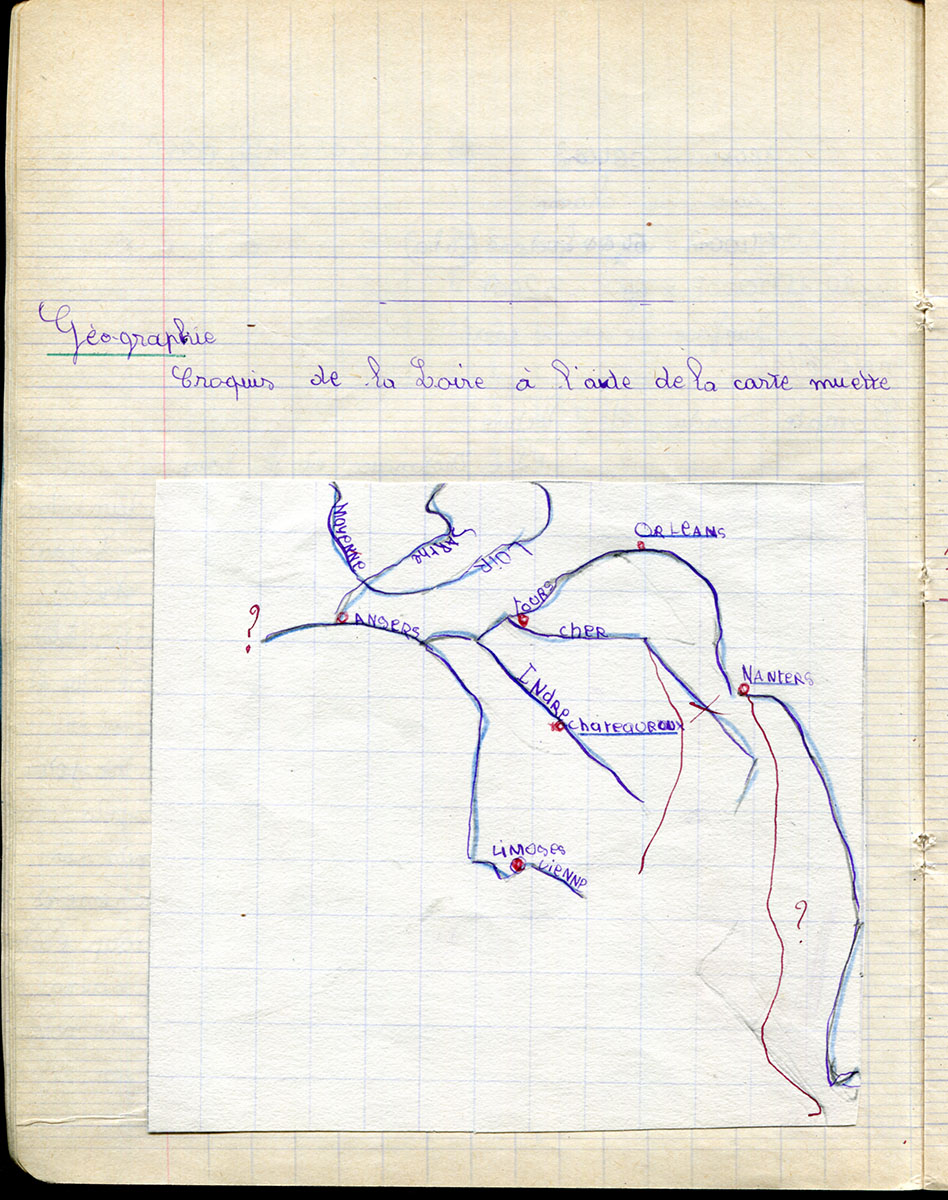 Géographie
Croquis de la Loire à l'aide de la carte muette
ORLEANS
MAYENNE
SARTHE
LOIR
?
ANGERS
TOURS
CHER
NANTERS
INDRE
CHATEAUROUX
LIMOGES
VIENNE
?